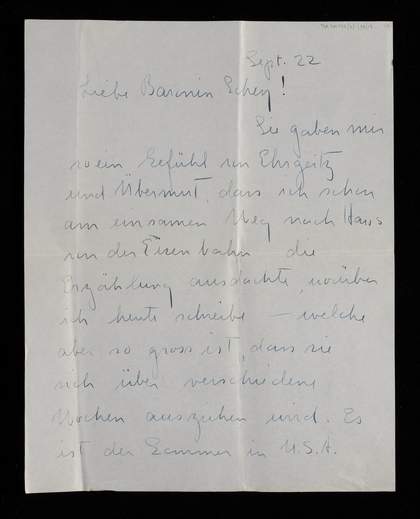 Sept. 22
Liebe Baronin Schey!
Sie gaben mir
so ein Gefühl von Ehrgeitz
und Übermut, dass ich schon
am einsamen Weg nach Haus
von der Eisenbahn die
Erzählung ausdachte, worüber
ich heute schreibe – welche
aber so gross ist, dass sie
sich über verschiedene
Wochen ausziehen wird. Es
ist der Sommer in U.S.A.